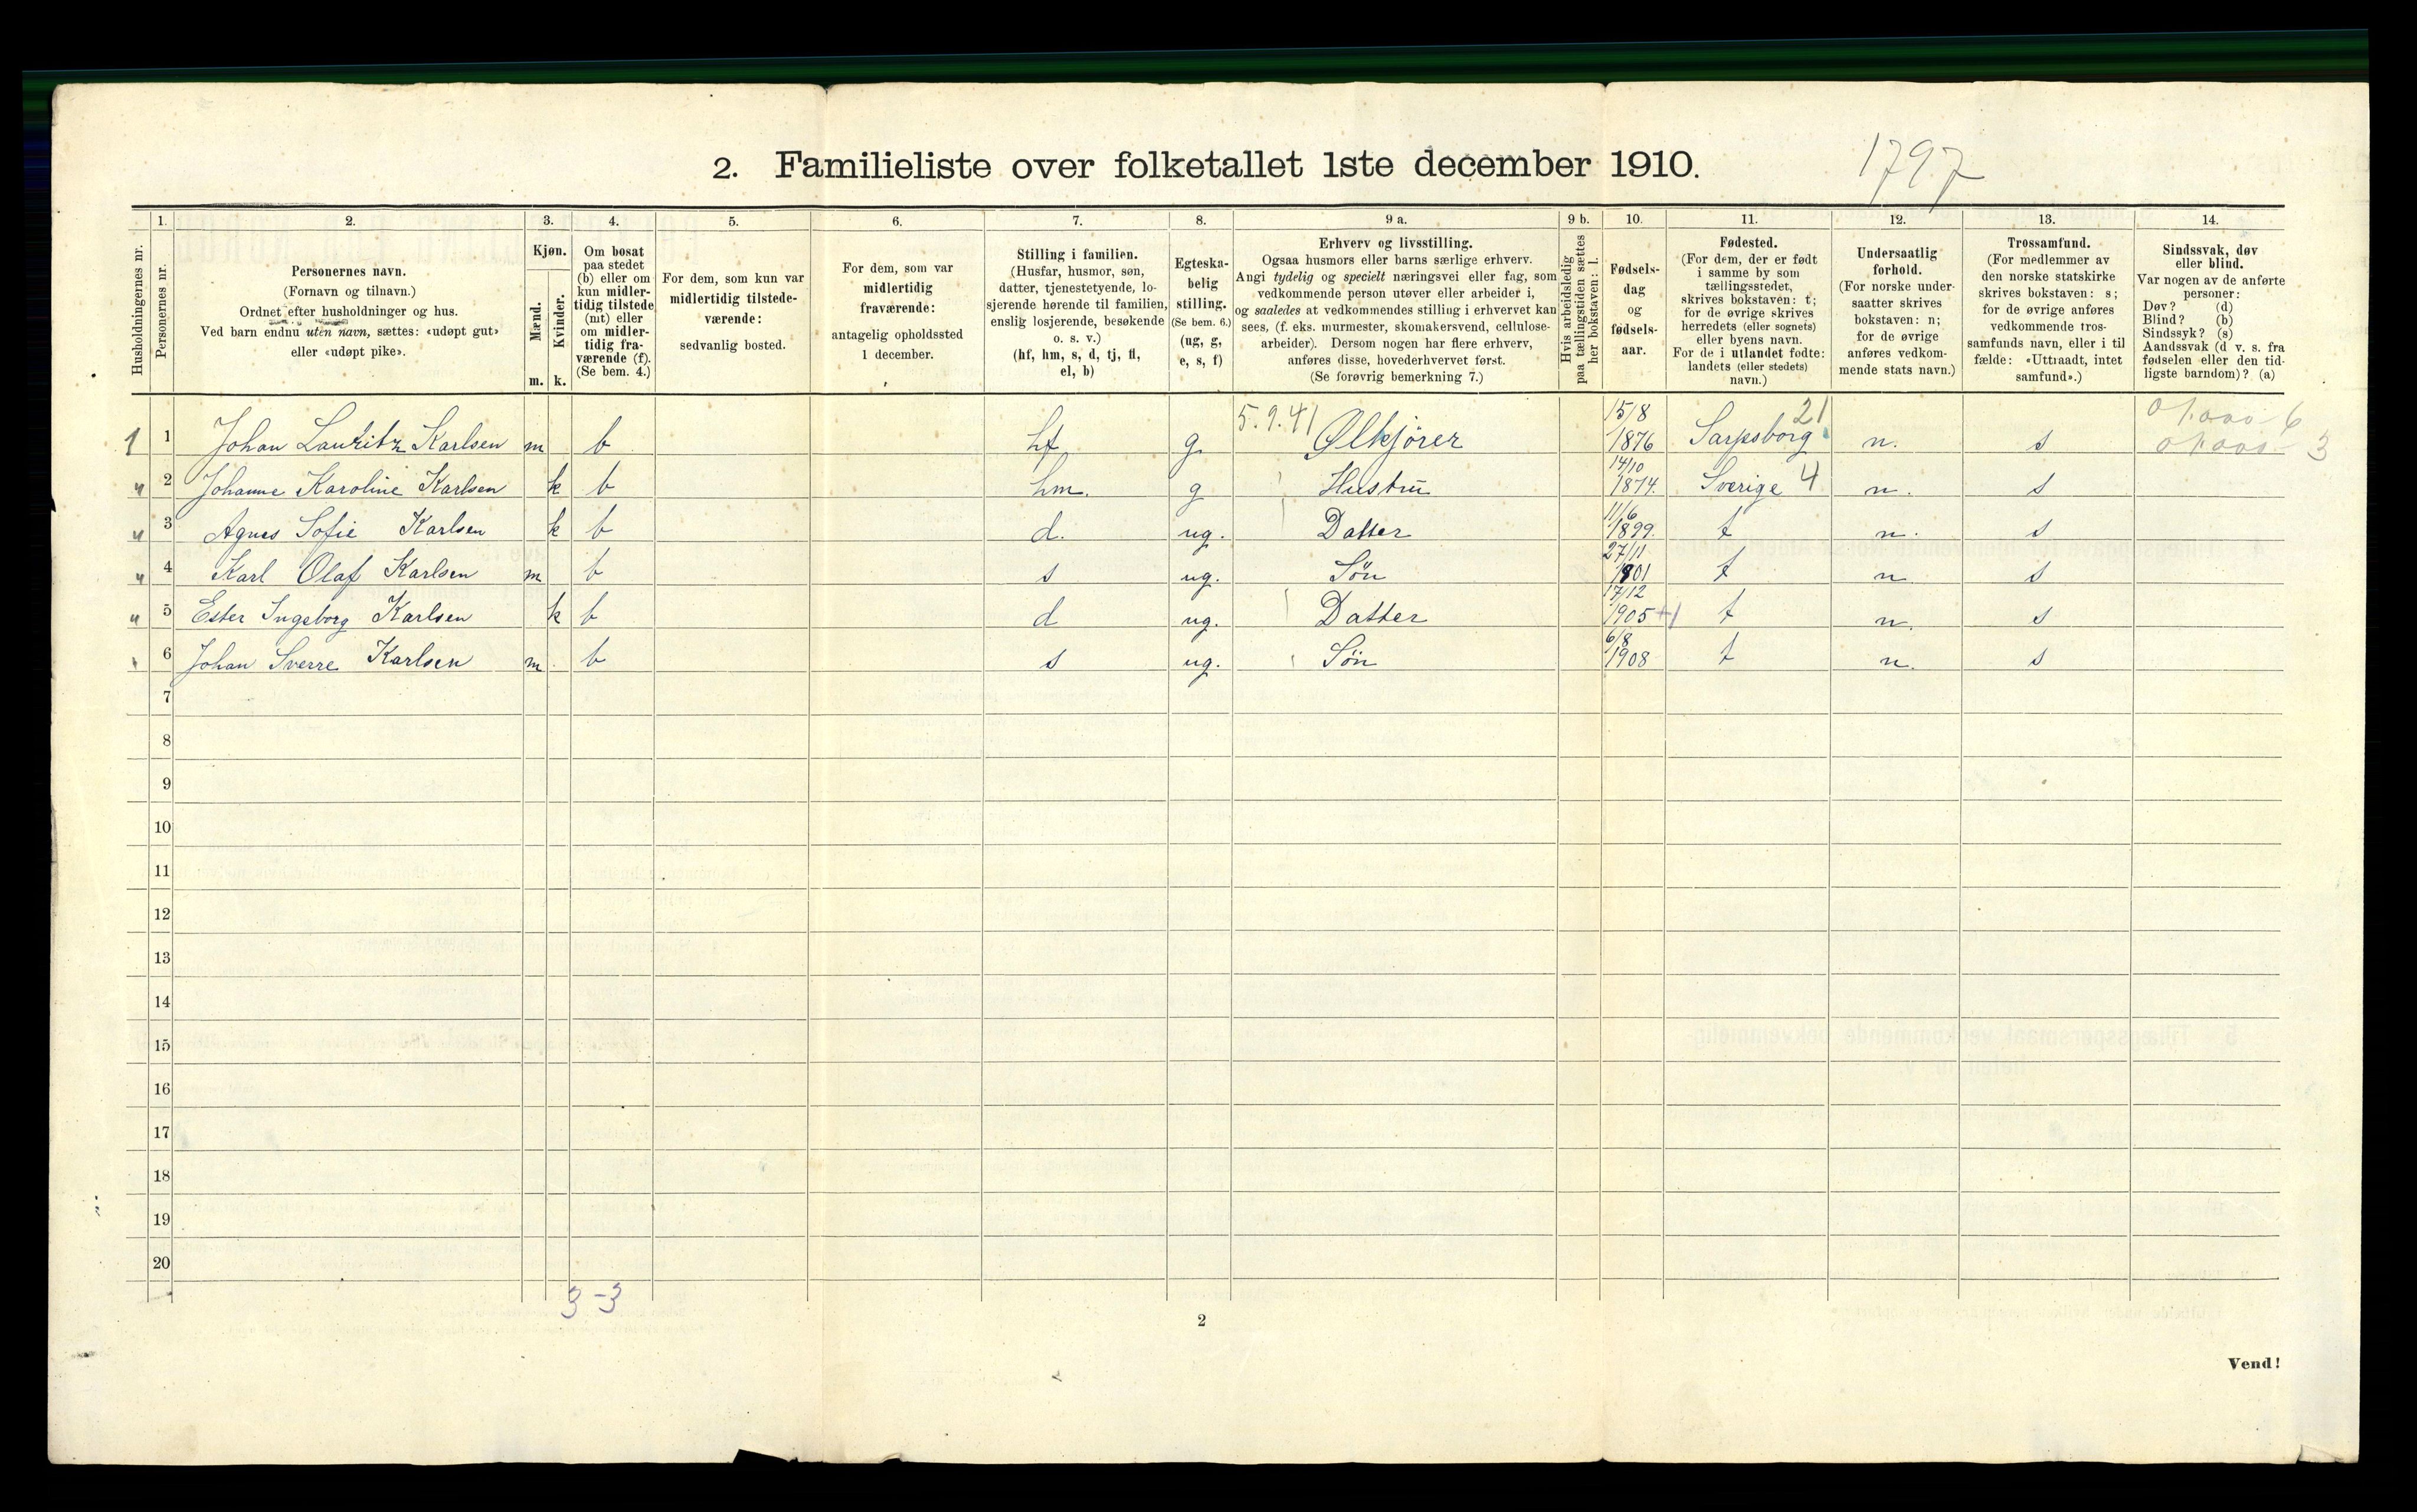 2. Familieliste over folketallet 1ste december 1910.
1797
1. 2. 3. 4. 5. 6. 7. 8. 9 a. 9 b. 10. 11. 12. 13. 14.
Husholdningernes nr.
Personernes nr.
Personernes navn.
(Fornavn og tilnavn.)
Ordnet efter husholdninger og hus.
Ved barn endnu uten navn, sættes: «udøpt gut»
eller «udøpt pike».
Kjøn.
Mænd.
Kvinder.
m. k.
Om bosat
paa stedet
(b) eller om
kun midler-
tidig tilstede
(mt) eller
om midler-
tidig fra-
værende (f).
(Se bem. 4.)
For dem, som kun var
midlertidig tilstede-
værende:
sedvanlig bosted.
For dem, som var
midlertidig
fraværende:
antagelig opholdssted
1 december.
Stilling i familien.
(Husfar, husmor, søn,
datter, tjenestetyende, lo-
sjerende hørende til familien,
enslig losjerende, besøkende
o. s. v.)
(hf, hm, s, d, tj, fl,
el, b)
Egteska-
belig
stilling.
(Se bem. 6.)
(ug, g,
e, s, f)
Erhverv og livsstilling.
Ogsaa husmors eller barns særlige erhverv.
Angi tydelig og specielt næringsvei eller fag, som
vedkommende person utøver eller arbeider i,
og saaledes at vedkommendes stilling i erhvervet kan
sees, (f. eks. murmester, skomakersvend, cellulose-
arbeider). Dersom nogen har flere erhverv,
anføres disse, hovederhvervet først.
(Se forøvrig bemerkning 7.)
Hvis arbeidsledig
paa tællingstiden sættes
her bokstaven: l.
Fødsels-
dag
og
fødsels-
aar.
Fødested.
(For dem, der er født
i samme by som
tællingsstedet,
skrives bokstaven: t;
for de øvrige skrives
herredets (eller sognets)
eller byens navn.
For de i utlandet fødte:
landets (eller stedets)
navn.)
Undersaatlig
forhold.
(For norske under-
saatter skrives
bokstaven: n;
for de øvrige
anføres vedkom-
mende stats navn.)
Trossamfund.
(For medlemmer av
den norske statskirke
skrives bokstaven: s;
for de øvrige anføres
vedkommende tros-
samfunds navn, eller i til
fælde: «Uttraadt, intet
samfund».)
Sindssvak, døv
eller blind.
Var nogen av de anførte
personer:
Døv? (d)
Blind? (b)
Sindssyk? (s)
Aandssvak (d v. s. fra
fødselen eller den tid-
ligste barndom)? (a)
5.9.41 15/8 21
1 1 Johan Lauritz Karlsen m b hf g Ølkjører 1876 Sarpsborg n. s
14/10
" 2 Johanne Karoline Karlsen k b hm. g Hustru 1874. Sverige 4 n. s
11/6
" 3 Agnes Sofie Karlsen k b d. ug. Datter 1899. t n. s
27/11
" 4 Karl Olaf Karlsen m b s ug. Søn 1901 t n s
17/12
" 5 Ester Ingeborg Karlsen k b d ug. Datter 1905 +1 t n. s
6/8
" 6 Johan Sverre Karlsen m b s ug. Søn 1908 t n. s
7
8
9
10
11
12
13
14
15
16
17
18
19
20
3-3
2
Vend!